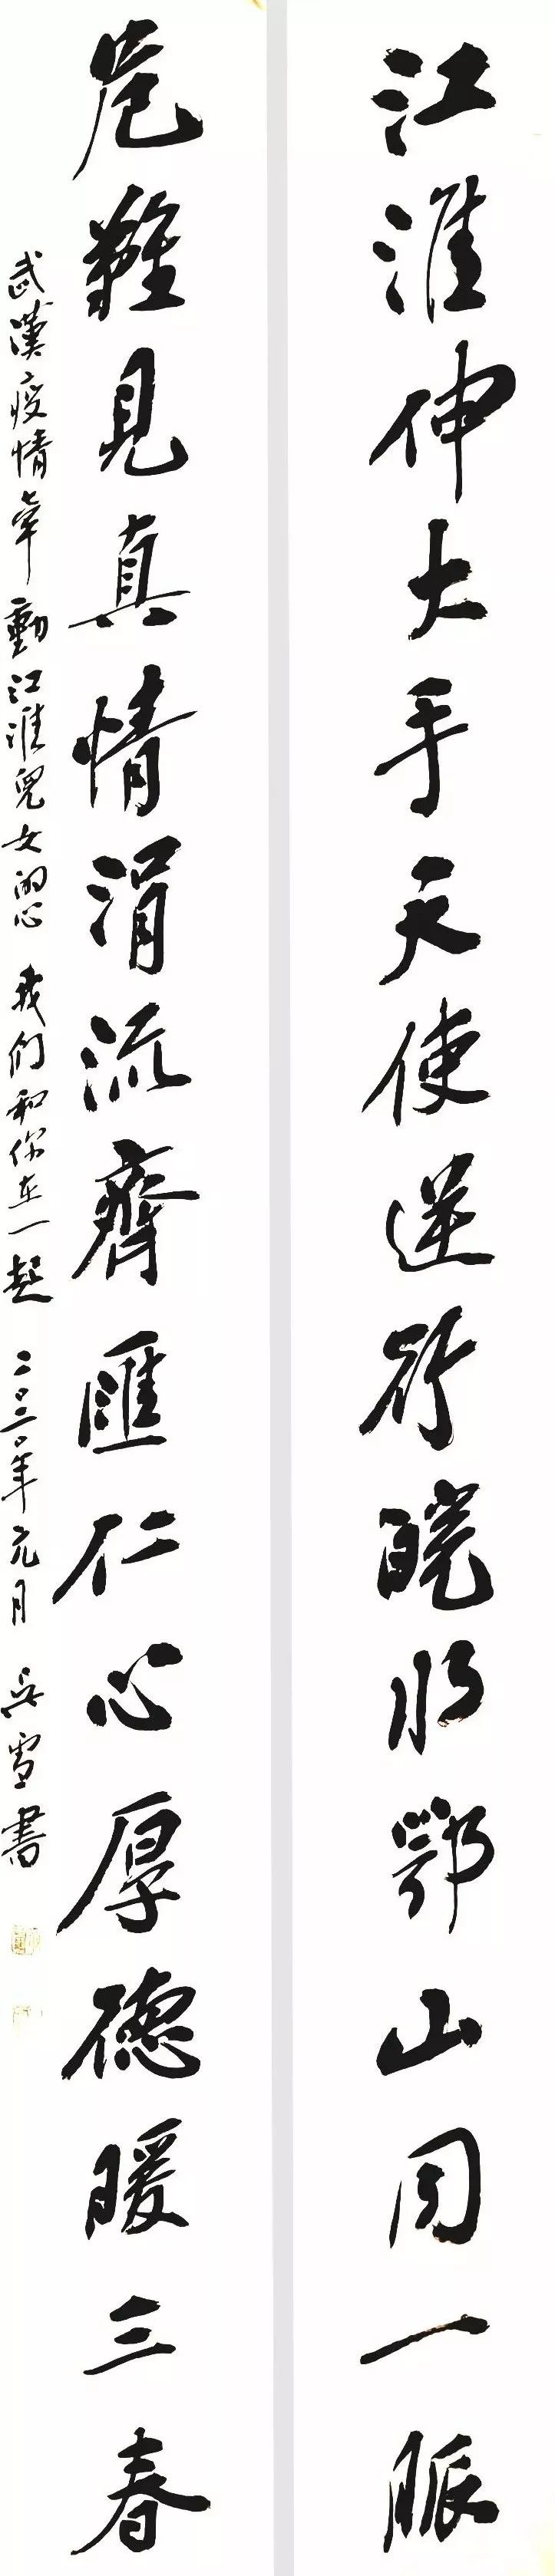 江淮伸大手天使逆行皖水鄂山同一脈
危難見真情涓流齊匯仁心厚德暖三春
武漢疫情牽動江淮兒女的心 我们和你在一起 二〇二〇年元月 吴雪書